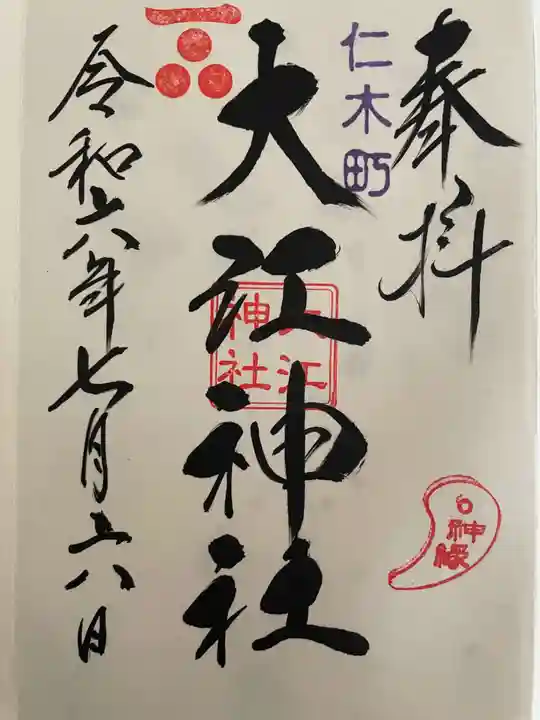 奉拝
仁木町
大江神社
大江
神社
神縁
令和六年七月六日